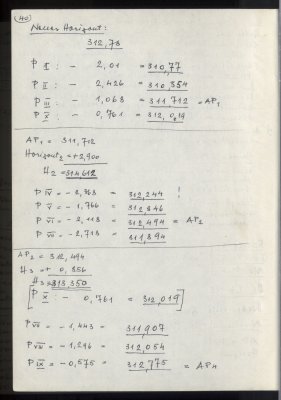 40
Neuer Horizont:
312,78
P I : - 2,01 = 310,77
P II : - 2,426 = 310,354
P III : - 1,068 = 311,712 = AP1
P X : - 0,761 = 312,019
AP1 = 311,712
Horizont2 = +2,900
H2 = 314612
P IV = - 2,368 = 312,244 !
P V = - 1,766 = 312,846
P VI = - 2,118 = 312,494 = AP2
P VII = - 2,718 = 311,894
AP2 = 312,494
H3 = + 0,856
H3 = 313,350
[P X : - 0,761 = 312,019]
P VII = - 1,443 = 311,907
P VIII = - 1,296 = 312,054
P IX = - 0,575 = 312,775 = AP4